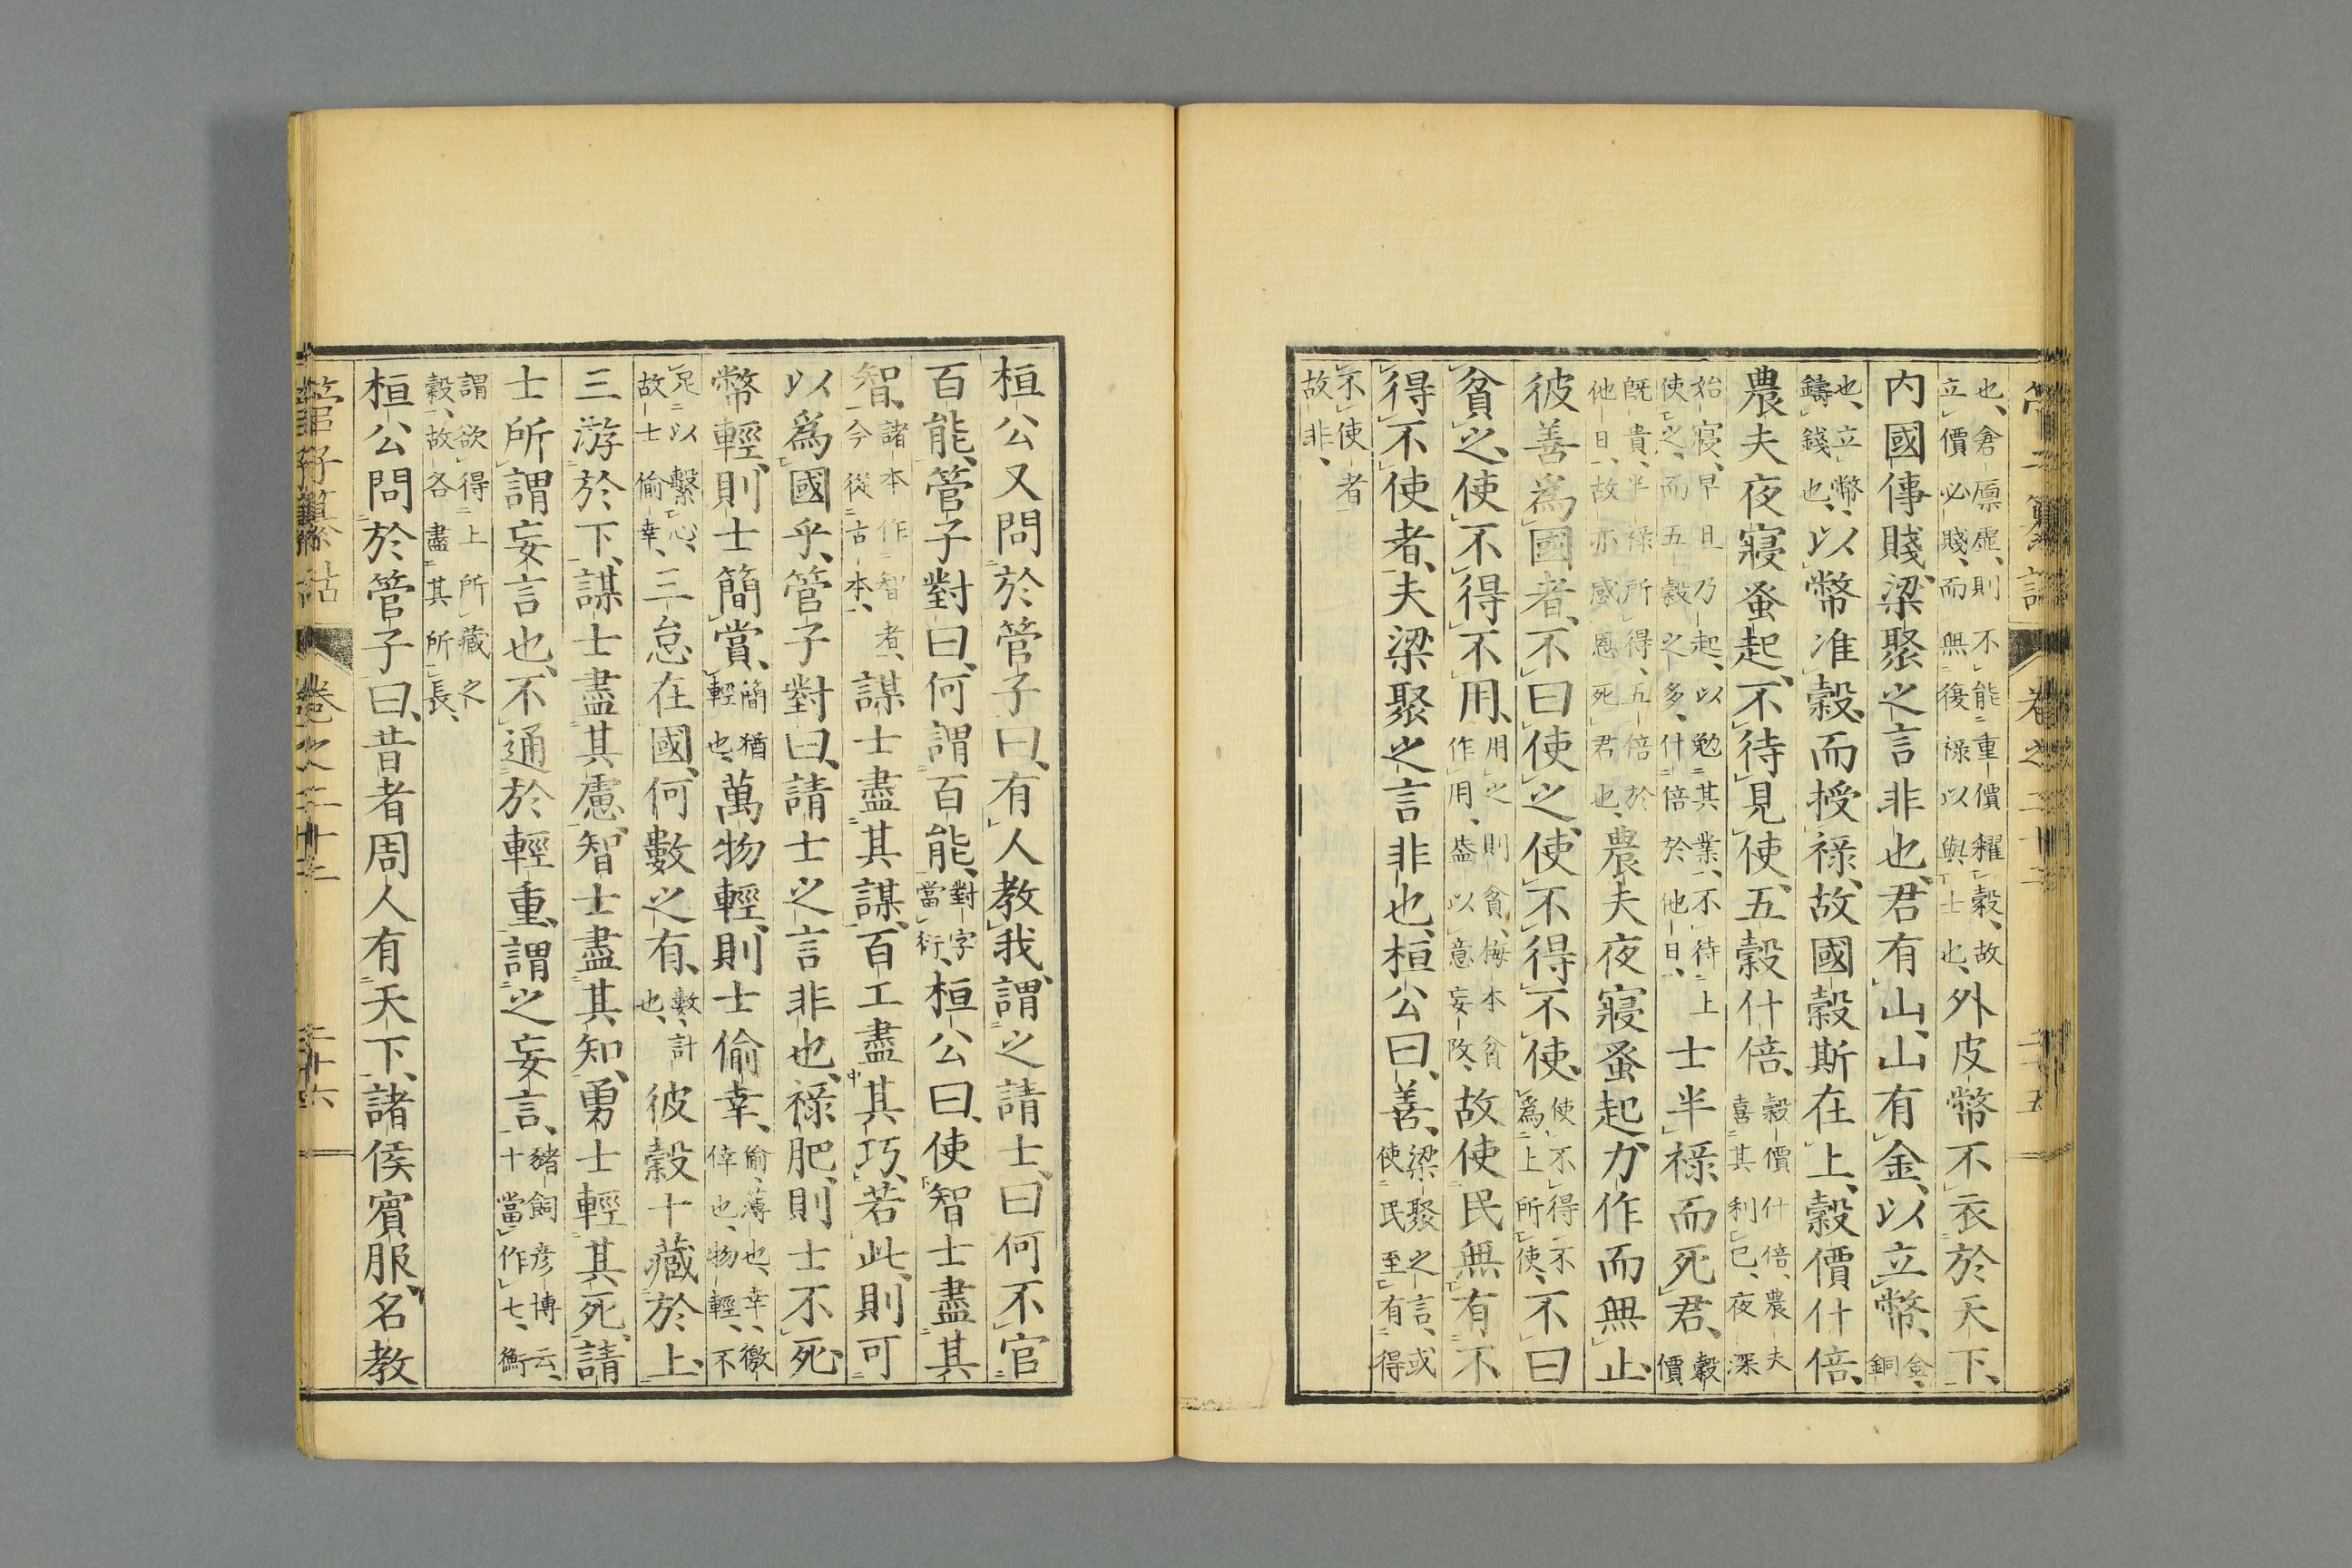 管子纂詁 卷之二十三 二十五
也、倉廩虛、則不能重價糴穀、故立價必賤、而無復祿以與士也、外皮幣不衣於天下、
内國傳賤、梁聚之言非也、君有山、山有金、以立幣、金、銅
也、立幣、鑄錢也、以幣准穀、而授祿、故國穀斯在上、穀價什倍、
農夫夜寢蚤起、不待見使、五穀什倍、穀價什倍、農夫喜其利已、夜深
始寢、早旦乃起、以勉其業、不待上使之、而五穀之多、什倍於他日、士半祿而死君、穀價
既貴、半祿所得、五倍於他日、故亦感恩死君也、農夫夜寢蚤起、力作而無止、
彼善為國者、不曰使之、使不得不使、使不得不為上所使、不曰
貧之、使不得不用、用之則貧、梅本貧作用、葢以意妄改、故使民無有不
得不使者、夫梁聚之言非也、桓公曰、善、梁聚之言、或使民至有得
不使者故非、
桓公又問於管子曰、有人教我、謂之請士、曰何不官
百能、管子對曰、何謂百能、對字當衍、桓公曰、使智士盡其
智、諸本作智者、今從古本、謀士盡其謀、百工盡其巧、若此、則可
以爲國乎、管子對曰、請士之言非也、祿肥、則士不死、
幣輕、則士簡賞、簡猶輕也、萬物輕、則士偷幸、偷、薄也、幸、徼倖也、物輕、不
足以繫心、故士偷幸、三怠在國、何數之有、數、計也、彼穀十藏於上、
三游於下、謀士盡其慮、智士盡其知、勇士輕其死、請
士所謂妄言也、不通於輕重、謂之妄言、豬飼彦博云、十當作七、衡
謂欲得上所藏之穀、故各盡其所長、
桓公問於管子曰、昔者周人有天下、諸侯賓服、名教
管子纂詁 卷之二十三 二十六